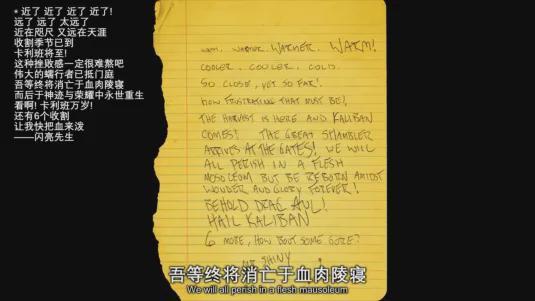 * 近了 近了 近了 近了!
远了 远了 太远了
近在咫尺 又远在天涯
收割季节已到
卡利班将至!
这种挫败感一定很难熬吧
伟大的蠕行者已抵门庭
吾等终将消亡于血肉陵寝
而后于神迹与荣耀中永世重生
看啊! 卡利班万岁!
还有6个收割
让我快把血来泼
——闪亮先生
WARM, WARMER, WARMER, WARM!
COOLER, COOLER, COLD.
SO CLOSE, YET SO FAR!
HOW FRUSTRATING THAT MUST BE!,
THE HARVEST IS HERE AND KALIBAN
COMES! THE GREAT SKAMBLER
ARRIVES AT THE GATES! WE WILL
ALL PERISH IN A FLESH
MOSOLEUM BUT BE REBORN AMIDST
WONDER AND GLORY FOREVER!
BEHOLD DRAC AUL!
HAIL KALIBAN
6 MORE, HOW BOUT SOME GORE?
MR SHINY
吾等终将消亡于血肉陵寝
We will all perish in a flesh mausoleum